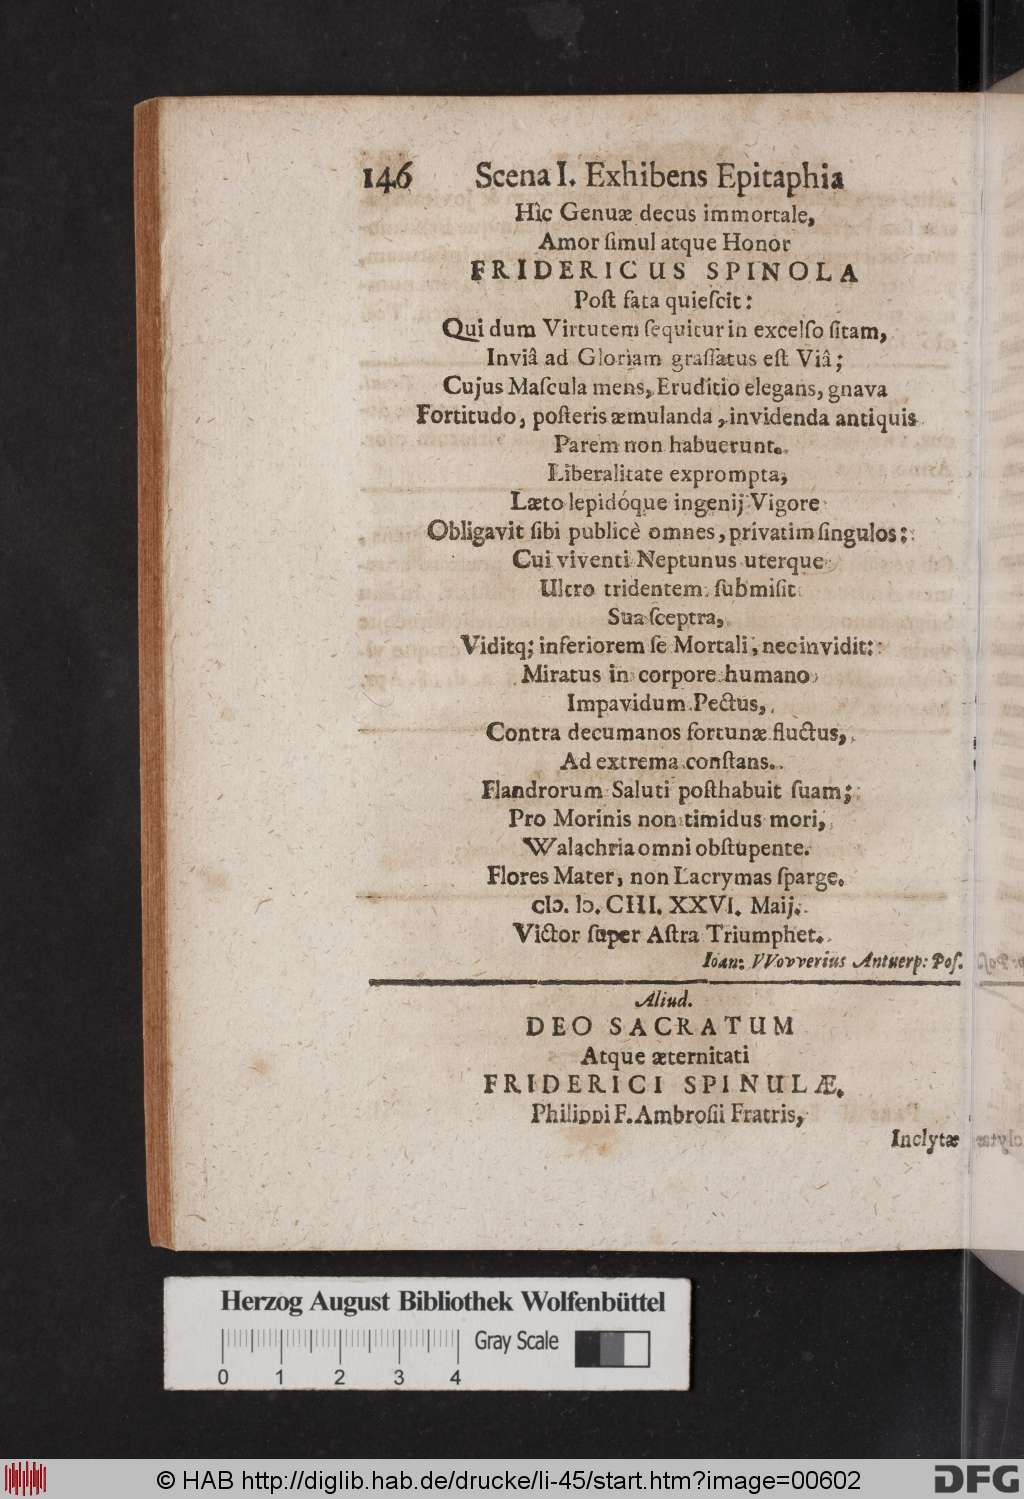 146 Scena I. Exhibens Epitaphia
Hìc Genuæ decus immortale,
Amor ſimul atque Honor
FRIDERICUS SPINOLA
Poſt fata quieſcit:
Qui dum Virtutem ſequitur in excelſo ſitam,
Inviâ ad Gloriam graſſatus eſt Viâ;
Cujus Maſcula mens, Eruditio elegans, gnava
Fortitudo, poſteris æmulanda, invidenda antiquis
Parem non habuerunt.
Liberalitate exprompta,
Læto lepidóque ingenij Vigore
Obligavit ſibi publicè omnes, privatim ſingulos:
Cui viventi Neptunus uterque
Ultro tridentem ſubmiſit
Sua ſceptra,
Viditq; inferiorem ſe Mortali, nec invidit:
Miratus in corpore humano
Impavidum Pectus,
Contra decumanos fortunæ fluctus,
Ad extrema conſtans.
Flandrorum Saluti poſthabuit ſuam;
Pro Morinis non timidus mori,
Walachria omni obſtupente.
Flores Mater, non Lacrymas ſparge.
cIↄ. Iↄ. CIII. XXVI. Maij.
Victor ſuper Aſtra Triumphet.
Ioan: VVovverius Antuerp: Poſ.
Aliud.
DEO SACRATUM
Atque æternitati
FRIDERICI SPINULÆ,
Philippi F. Ambroſii Fratris,
Inclytæ
Herzog August Bibliothek Wolfenbüttel
Gray Scale
0 1 2 3 4
© HAB http://diglib.hab.de/drucke/li-45/start.htm?image=00602
DFG